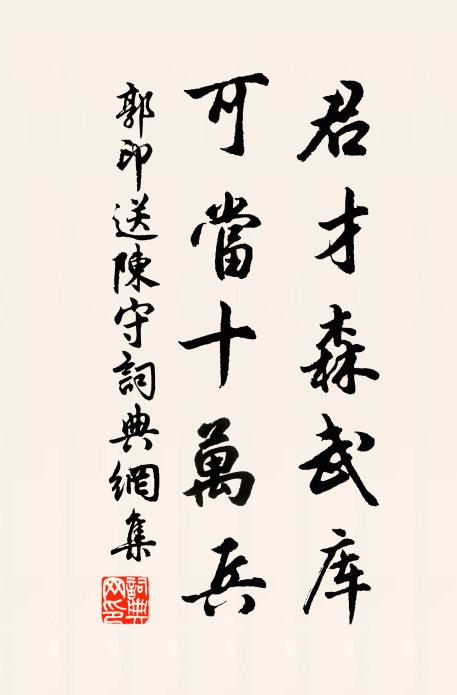 君才森武库
可當十萬兵
郭印送陳守詞典網集
詞典网印